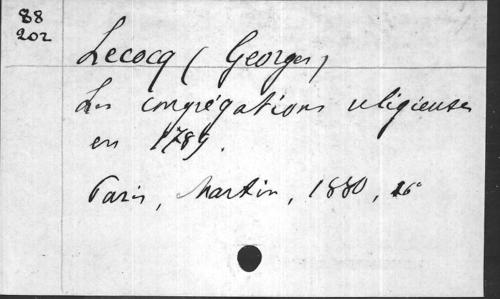 88
202
Lecocq (Georges)
Les congrégations religieuses
en 1789.
Paris, Martin, 1880, 16°